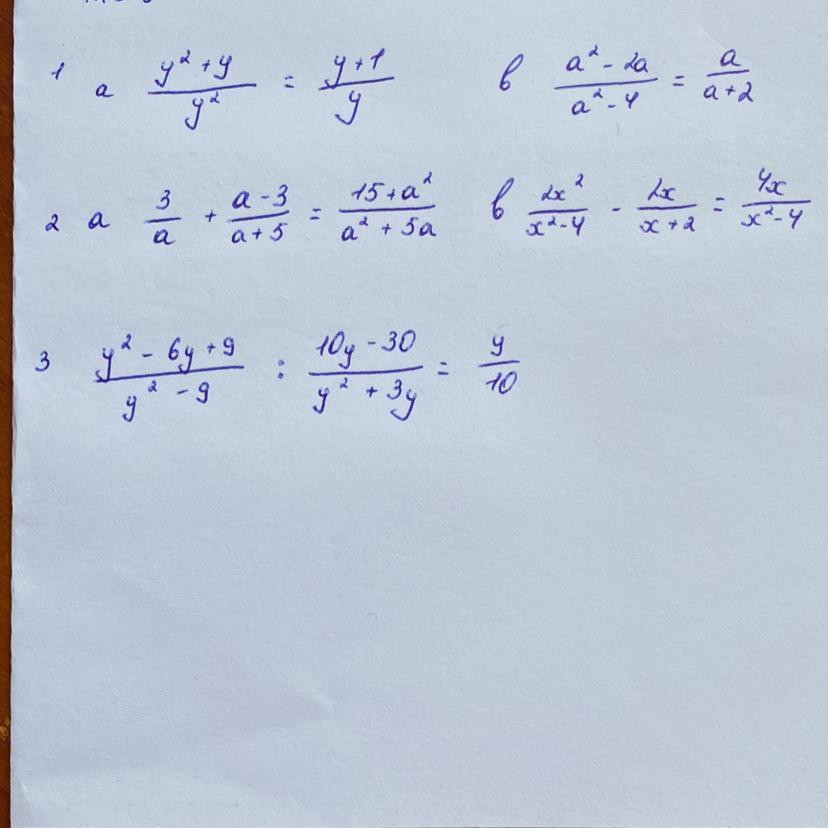 1 а (y² + y)/y² = (y + 1)/y в (a² - 2a)/(a² - 4) = a/(a + 2)
2 а 3/a + (a - 3)/(a + 5) = (15 + a²)/(a² + 5a) в 2x²/(x² - 4) - 2x/(x + 2) = 4x/(x² - 4)
3 (y² - 6y + 9)/(y² - 9) : (10y - 30)/(y² + 3y) = y/10